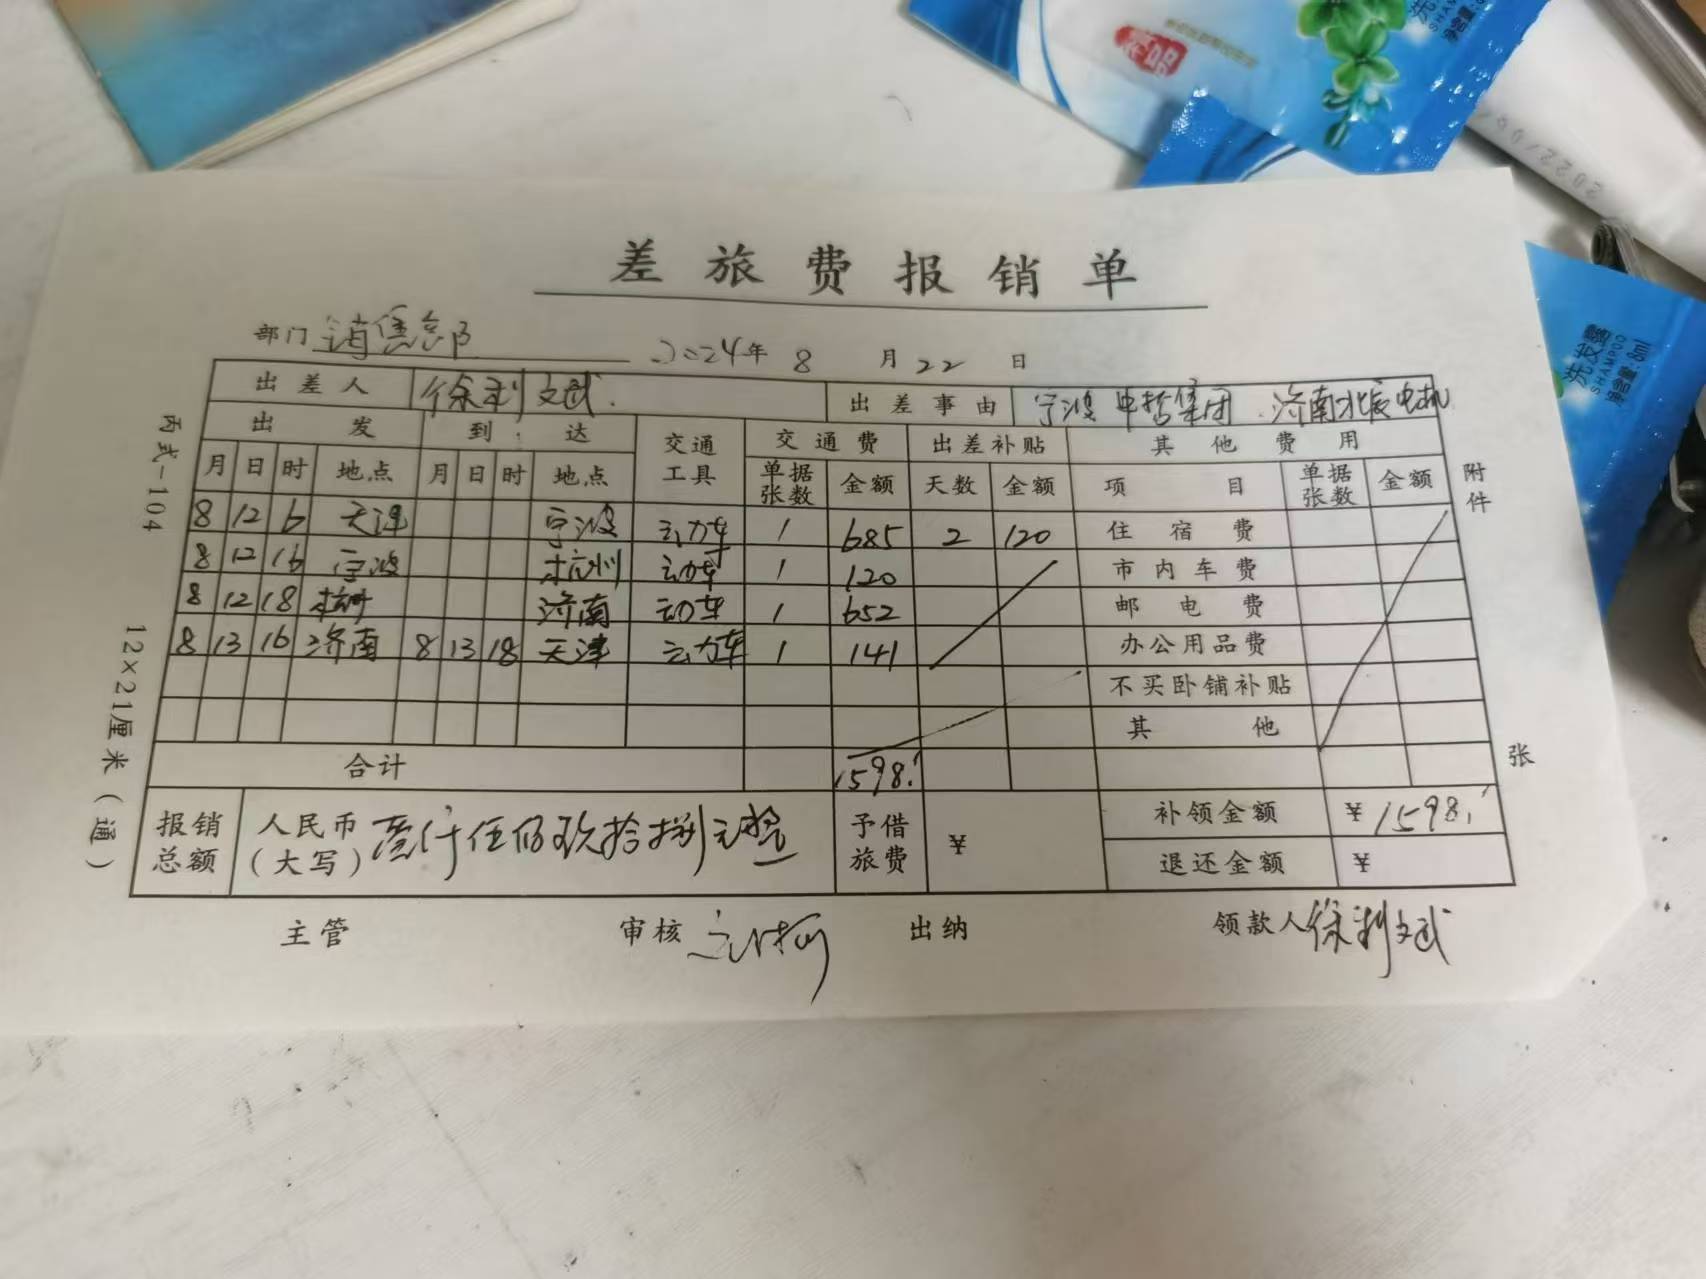 精品
洗发露
SHAMPOO
净含量:8ml
2022/0
差旅费报销单
部门 销售总部 2024年 8 月 22 日
出差人 徐利斌 出差事由 宁波中哲集团 济南北辰电机
出发 到达 交通工具 交通费 出差补贴 其他费用
月 日 时 地点 月 日 时 地点 单据张数 金额 天数 金额 项目 单据张数 金额
8 12 6 天津 宁波 动车 1 685 2 120 住宿费
8 12 16 宁波 杭州 动车 1 120 市内车费
8 12 18 杭州 济南 动车 1 652 邮电费
8 13 16 济南 8 13 18 天津 动车 1 141 办公用品费
不买卧铺补贴
其他
合计 1598.
报销总额 人民币(大写) 壹仟伍佰玖拾捌元整 予借旅费 ¥ 补领金额 ¥1598.
退还金额 ¥
主管 审核 出纳 领款人 徐利斌
丙式-104 12×21厘米(通)
附件 张